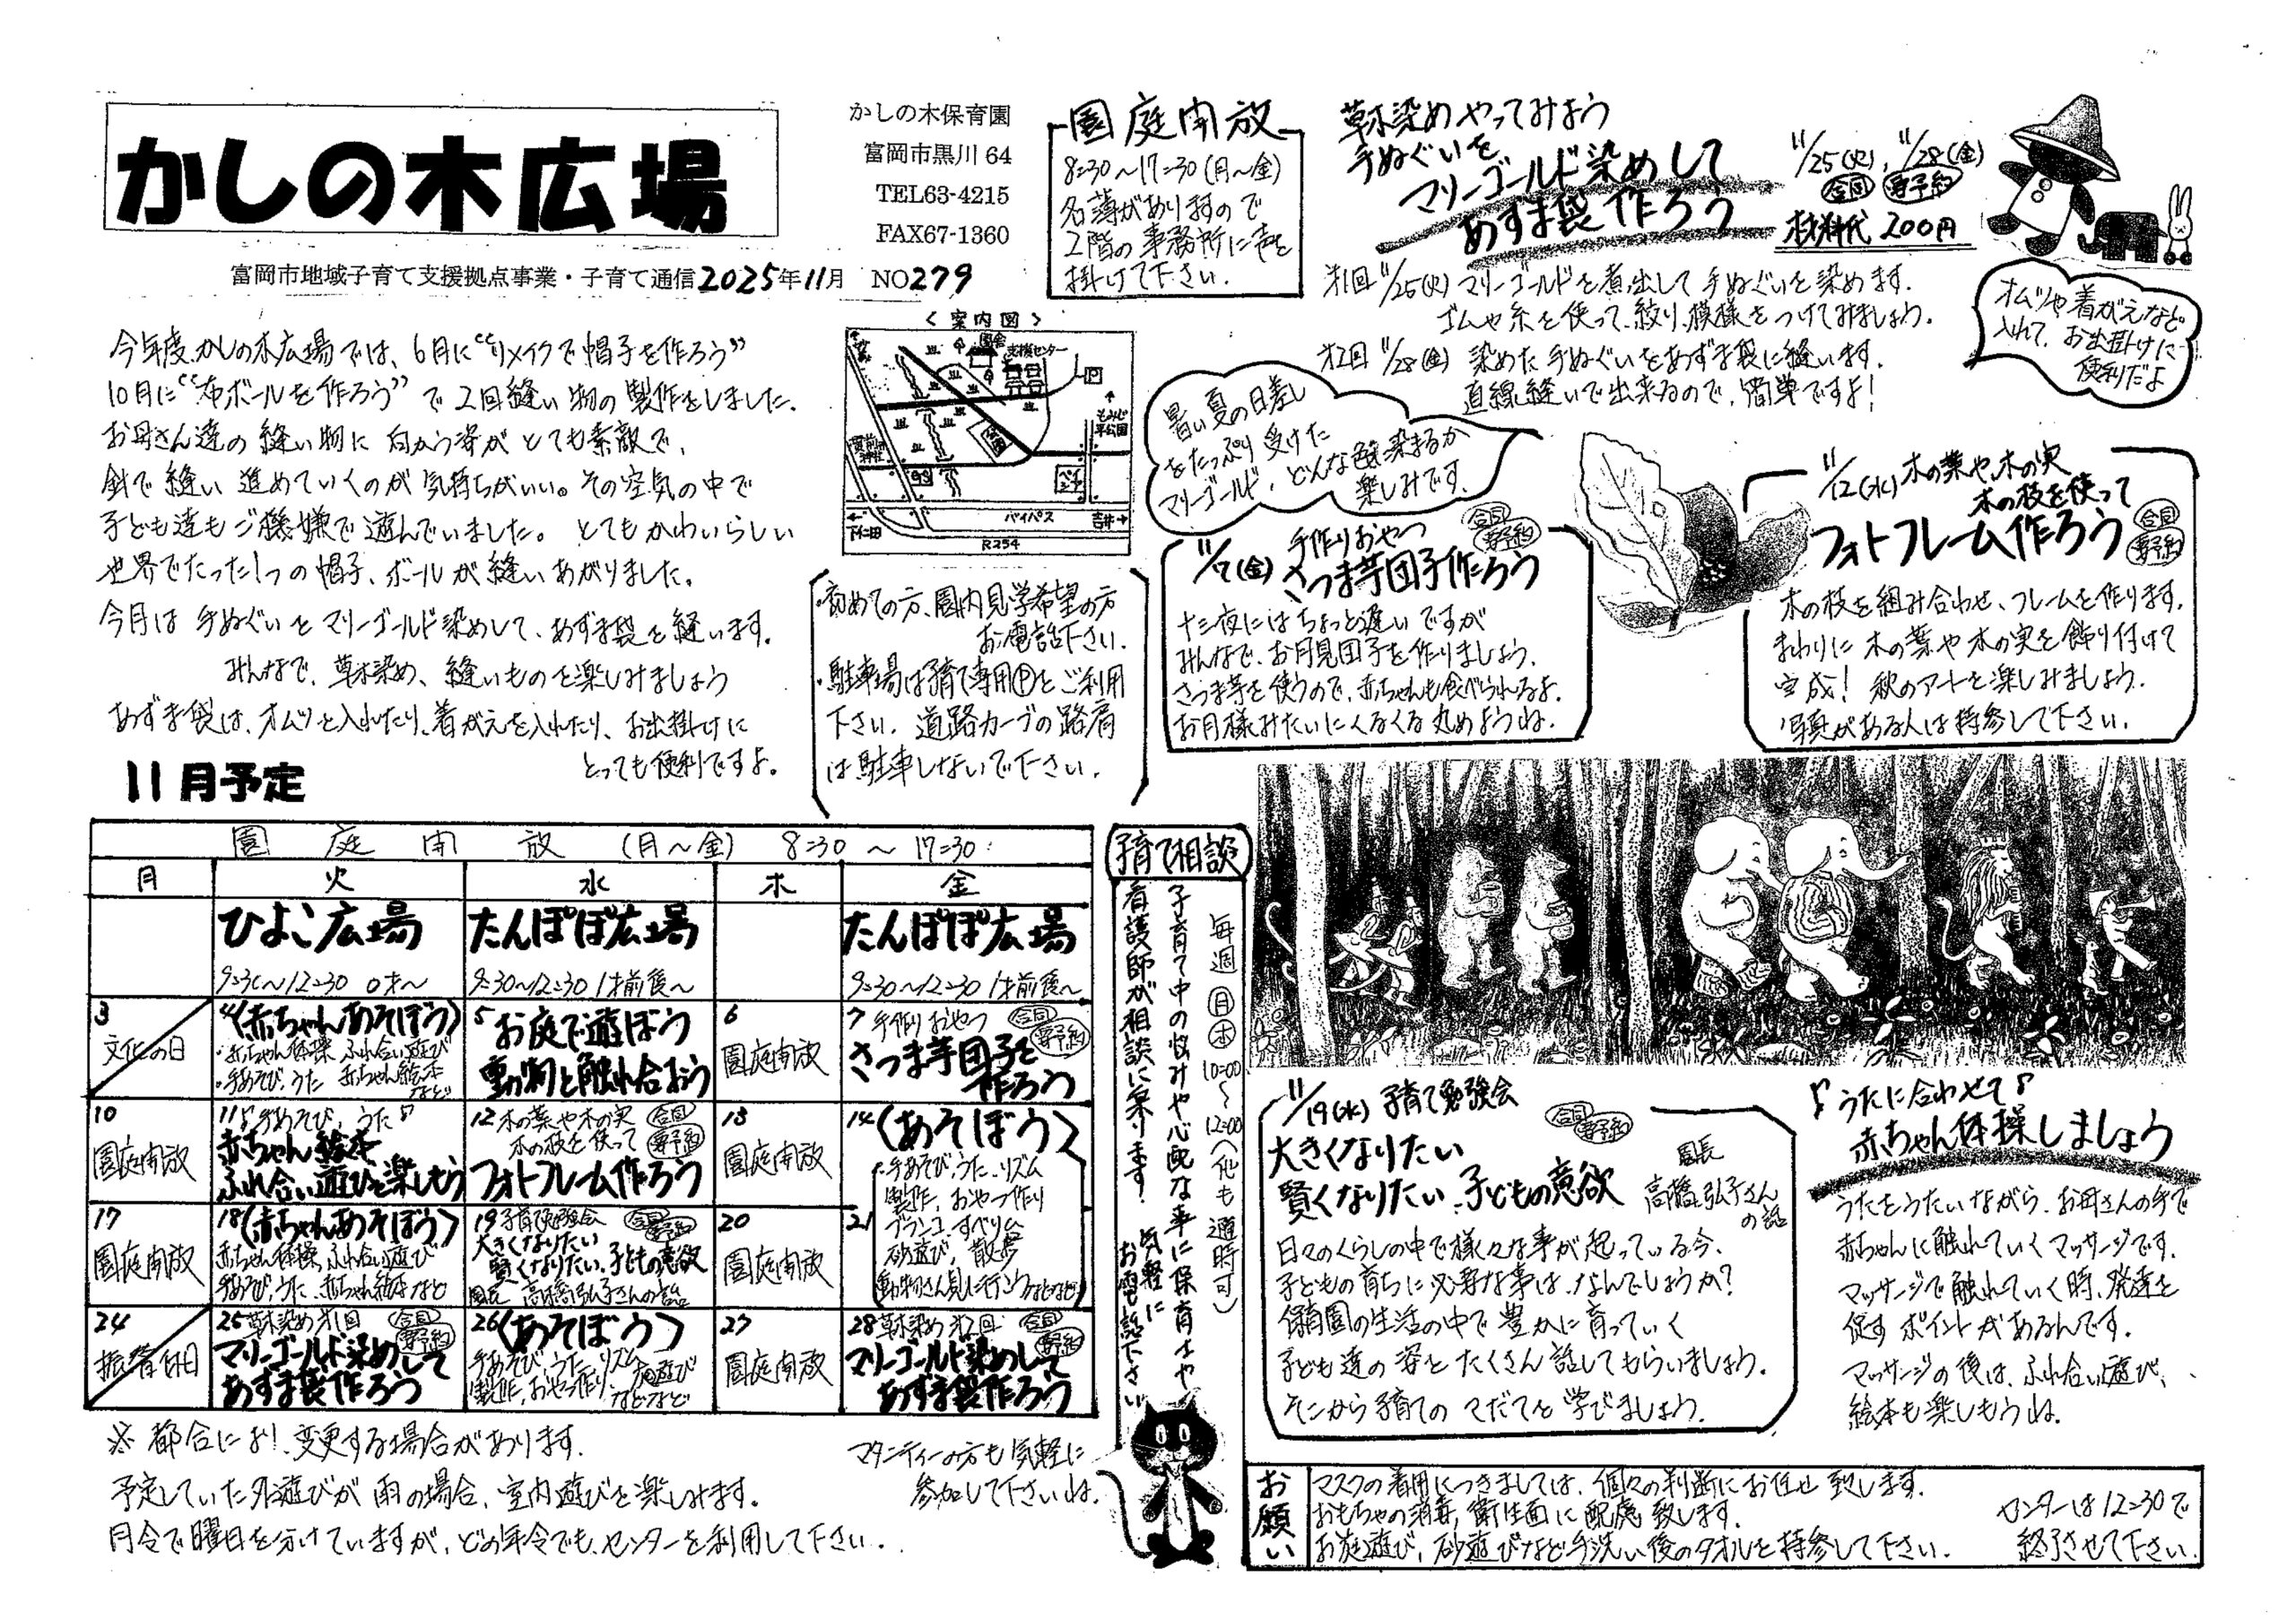 かしの木広場
かしの木保育園
富岡市黒川 64
TEL63-4215
FAX67-1360
富岡市地域子育て支援拠点事業・子育て通信 2025年11月 NO279
今年度、かしの木広場では、6月に“リメイクで帽子を作ろう”
10月に“布ボールを作ろう”で2回縫い物の製作をしました。
お母さん達の縫い物に向かう姿がとても素敵で、
針で縫い進めていくのが気持ちがいい。その空気の中で
子ども達もご機嫌で遊んでいました。とてもかわいらしい
世界でたった1つの帽子、ボールが縫いあがりました。
今月は手ぬぐいをマリーゴールド染めして、あずま袋を縫います。
みんなで、草木染め、縫いものを楽しみましょう
あずま袋は、オムツを入れたり、着がえを入れたり、お出掛けに
とっても便利ですよ。
園庭開放
8:30〜17:30(月〜金)
名簿がありますので
2階の事務所に声を
掛けて下さい。
<案内図>
園舎
支援センター
P
もみじ平公園
公園
GS
バイパス
下仁田
吉井
R254
・初めての方、園内見学希望の方
お電話下さい。
・駐車場は子育て専用Pをご利用
下さい。道路カーブの路肩
は駐車しないで下さい。
草木染めやってみよう
手ぬぐいを
マリーゴールド染めして
あずま袋作ろう
11/25(火), 11/28(金)
合同 要予約
材料代 200円
第1回 11/25(火) マリーゴールドを煮出して手ぬぐいを染めます。
ゴムや糸を使って、絞り、模様をつけてみましょう。
第2回 11/28(金) 染めた手ぬぐいをあずま袋に縫います。
直線縫いで出来るので、簡単ですよ!
オムツや着がえなど
入れて、お出掛けに
便利だよ
暑い夏の日差し
をたっぷり受けた
マリーゴールド、どんな色に染まるか
楽しみです。
11/7(金) 手作りおやつ 合同 要予約
さつま芋団子作ろう
十三夜にはちょっと遅いですが
みんなで、お月見団子を作りましょう。
さつま芋を使うので、赤ちゃんも食べられるよ。
お月様みたいにくるくる丸めようね。
11/12(水) 木の葉や、木の実
木の枝を使って
フォトフレーム作ろう 合同 要予約
木の枝を組み合わせ、フレームを作ります。
まわりに木の葉や木の実を飾り付けて
完成! 秋のアートを楽しみましょう。
写真がある人は持参して下さい。
11月予定
園庭開放 (月〜金) 8:30 〜 17:30
月 火 水 木 金
ひよこ広場
9:30〜12:30 0才〜
たんぽぽ広場
9:30〜12:30 1才前後〜
たんぽぽ広場
9:30〜12:30 1才前後〜
3
文化の日
4〈赤ちゃんあそぼう〉
・赤ちゃん体操、ふれ合い遊び
・手あそび、うた 赤ちゃん絵本
など
5 お庭で遊ぼう
動物と触れ合おう
6
園庭開放
7 手作りおやつ 合同 要予約
さつま芋団子を
作ろう
10
園庭開放
11 ♪手あそび、うた♪
赤ちゃん絵本
ふれ合い遊びを楽しもう
12 木の葉や木の実 合同
木の枝を使って 要予約
フォトフレーム作ろう
13
園庭開放
14〈あそぼう〉
手あそび、うた、リズム
製作、おやつ作り
ブランコ、すべり台
砂遊び、散歩
動物さん見に行こうなどなど
17
園庭開放
18〈赤ちゃんあそぼう〉
赤ちゃん体操、ふれ合い遊び
手あそび、うた、赤ちゃん絵本など
19 子育て勉強会 合同 要予約
大きくなりたい
賢くなりたい、子どもの意欲
園長 高橋弘子さんの話
20
園庭開放
21
24
振替休日
25 草木染め第1回 合同 要予約
マリーゴールド染めして
あずま袋作ろう
26〈あそぼう〉
手あそび、うた、リズム
製作、おやつ作り、外遊び
などなど
27
園庭開放
28 草木染め第2回 合同 要予約
マリーゴールド染めして
あずま袋作ろう
※都合により、変更する場合があります。
予定していた外遊びが雨の場合、室内遊びを楽しみます。
月令で曜日を分けていますが、どの年令でも、センターを利用して下さい。
マタニティーの方も気軽に
参加して下さいね。
子育て相談
毎週 月 木 10:00〜12:00(他も随時可)
子育て中の悩みや心配な事に保育士や
看護師が相談に乗ります! 気軽に
お電話下さい
11/19(水) 子育て勉強会 合同 要予約
大きくなりたい
賢くなりたい、子どもの意欲
園長
高橋弘子さん
の話
日々のくらしの中で様々な事が起っている今、
子どもの育ちに必要な事は、なんでしょうか?
保育園の生活の中で豊かに育っていく
子ども達の姿をたくさん話してもらいましょう。
そこから子育てのてだてを学びましょう。
♪うたに合わせて♪
赤ちゃん体操しましょう
うたをうたいながら、お母さんの手で
赤ちゃんに触れていくマッサージです。
マッサージで触れていく時、発達を
促すポイントがあるんです。
マッサージの後は、ふれ合い遊び、
絵本も楽しもうね。
お願い
マスクの着用につきましては、個々の判断にお任せ致します。
おもちゃの消毒、衛生面に配慮致します。
お庭遊び、砂遊びなど手洗い後のタオルを持参して下さい。
センターは12:30で
終了させて下さい。